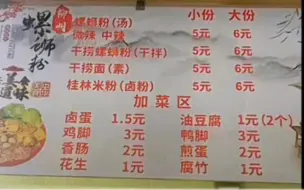 柳州
螺蛳粉
美味
小份 大份
螺蛳粉(汤) 5元 6元
微辣 中辣
干捞螺蛳粉(干拌) 5元 6元
干捞面(素) 5元 6元
桂林米粉(卤粉) 5元 6元
加菜区
卤蛋 1.5元 油豆腐 1元(2个)
鸡脚 3元 鸭脚 3元
香肠 2元 煎蛋 2元
花生 1元 腐竹 1元